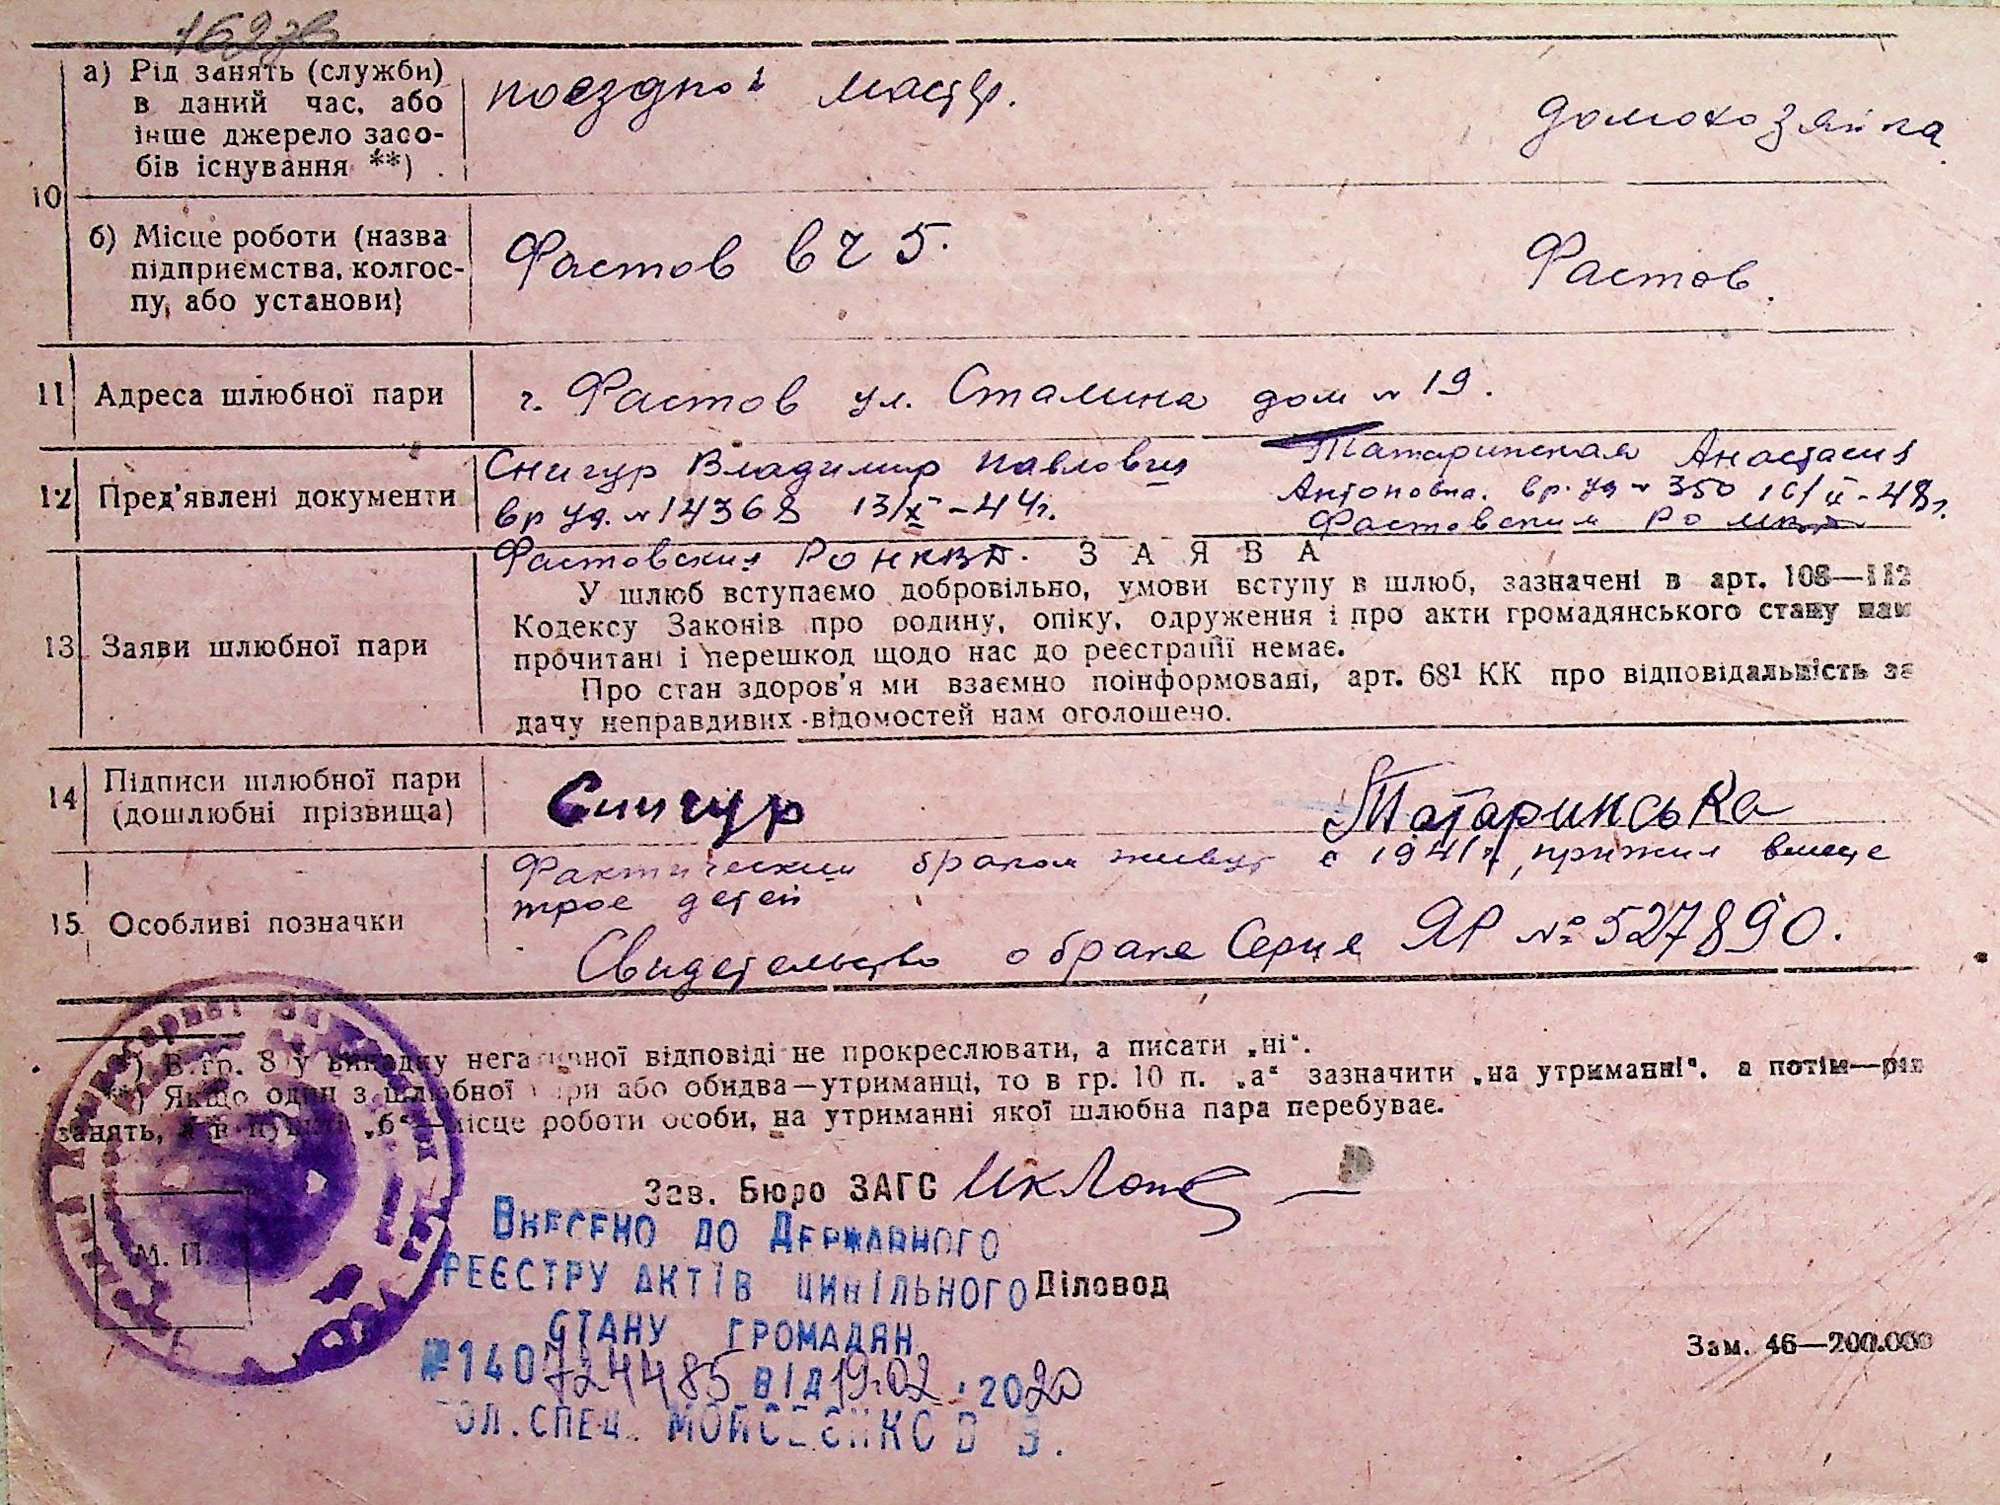 а) Рід занять (служби)
в даний час, або
інше джерело засо-
бів існування **)
поездной мастер.
домохозяйка
10
б) Місце роботи (назва
підприємства, колгос-
пу, або установи)
Фастов вч 5.
Фастов.
11 Адреса шлюбної пари
г. Фастов ул. Сталина дом № 19.
12 Пред'явлені документи
Снигур Владимир Павлович
вр уд. № 14368 13/X-44г.
Фастовским РОНКВД.
Татаринская Анастасия
Антоновна. вр. уд № 350 16/II-48г.
Фастовским РО
13 Заяви шлюбної пари
ЗАЯВА
У шлюб вступаємо добровільно, умови вступу в шлюб, зазначені в арт. 108—112
Кодексу Законів про родину, опіку, одруження і про акти громадянського стану нам
прочитані і перешкод щодо нас до реєстрації немає.
Про стан здоров'я ми взаємно поінформовані, арт. 68¹ КК про відповідальність за
дачу неправдивих відомостей нам оголошено.
14 Підписи шлюбної пари
(дошлюбні прізвища)
Снигур
Татаринська
15 Особливі позначки
Фактическим браком живут с 1941г, прижил вместе
трое детей
Свидетельство о браке Серия ЯР № 527890.
*) В гр. 8 у випадку негативної відповіді не прокреслювати, а писати „ні“.
**) Якщо один з шлюбної пари або обидва—утриманці, то в гр. 10 п. „а“ зазначити „на утриманні“, а потім—рід
занять, а в пункті „б“—місце роботи особи, на утриманні якої шлюбна пара перебуває.
Зав. Бюро ЗАГС
М. П.
Діловод
Внесено до Державного
реєстру актів цивільного
стану громадян
№140724485 від 19.02.2020
гол.спец. Мойсеєнко В В.
Зам. 46—200.000